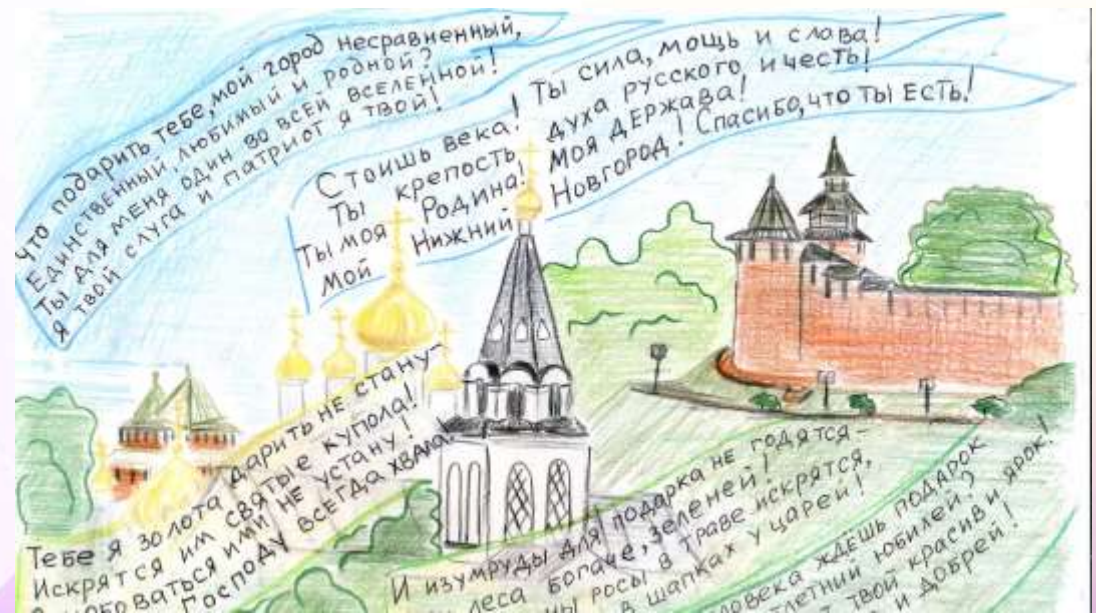 Что подарить тебе, мой город несравненный,
Единственный, любимый и родной?
Ты для меня один во всей вселенной!
Я твой слуга и патриот я твой!
Стоишь века! Ты сила, мощь и слава!
Ты крепость духа русского, и честь!
Ты моя Родина! Моя держава!
Мой Нижний Новгород! Спасибо, что ты есть!
Тебе я золота дарить не стану-
Искрятся им святые купола!
ими не устану!
Господу всегда хвала!
И изумруды для подарка не годятся-
леса богаче, зеленей!
росы в траве искрятся,
в шапках у царей!
ждёшь подарок
летний юбилей?
твой красив и ярок!
и добрей!